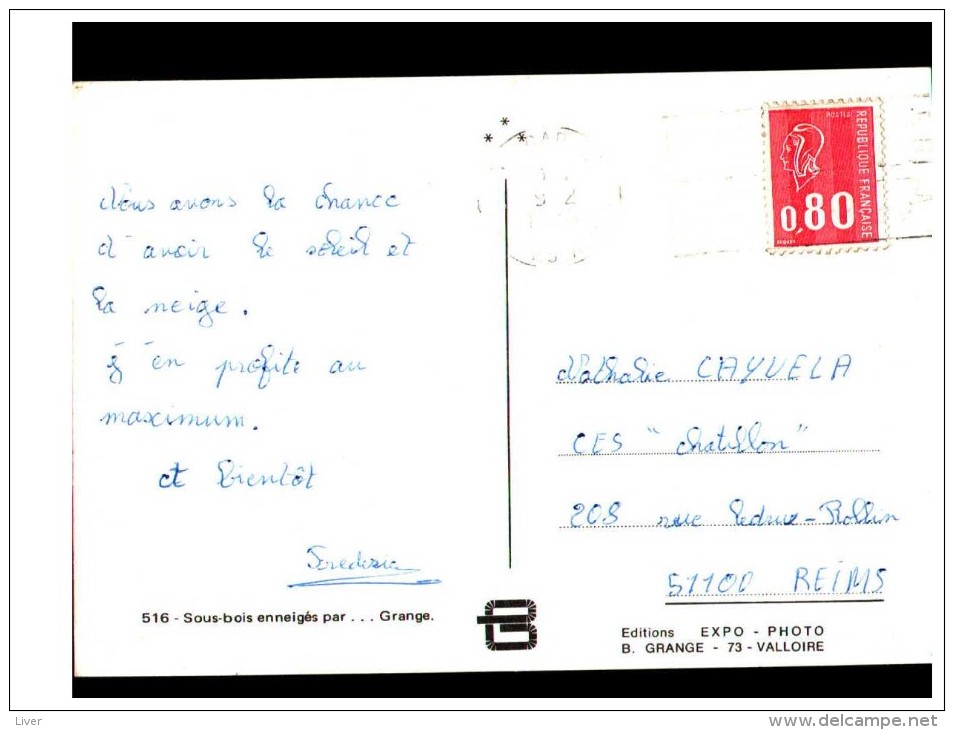 Nous avons la chance
d'avoir le soleil et
la neige.
J'en profite au
maximum.
A bientôt
Frederic
516 - Sous-bois enneigés par . . . Grange.
POSTES
REPUBLIQUE FRANÇAISE
0,80
Nathalie CAYUELA
CES "Chatillon"
208 rue Ledru-Rollin
51100 REIMS
Editions EXPO - PHOTO
B. GRANGE - 73 - VALLOIRE
Liver
www.delcampe.net